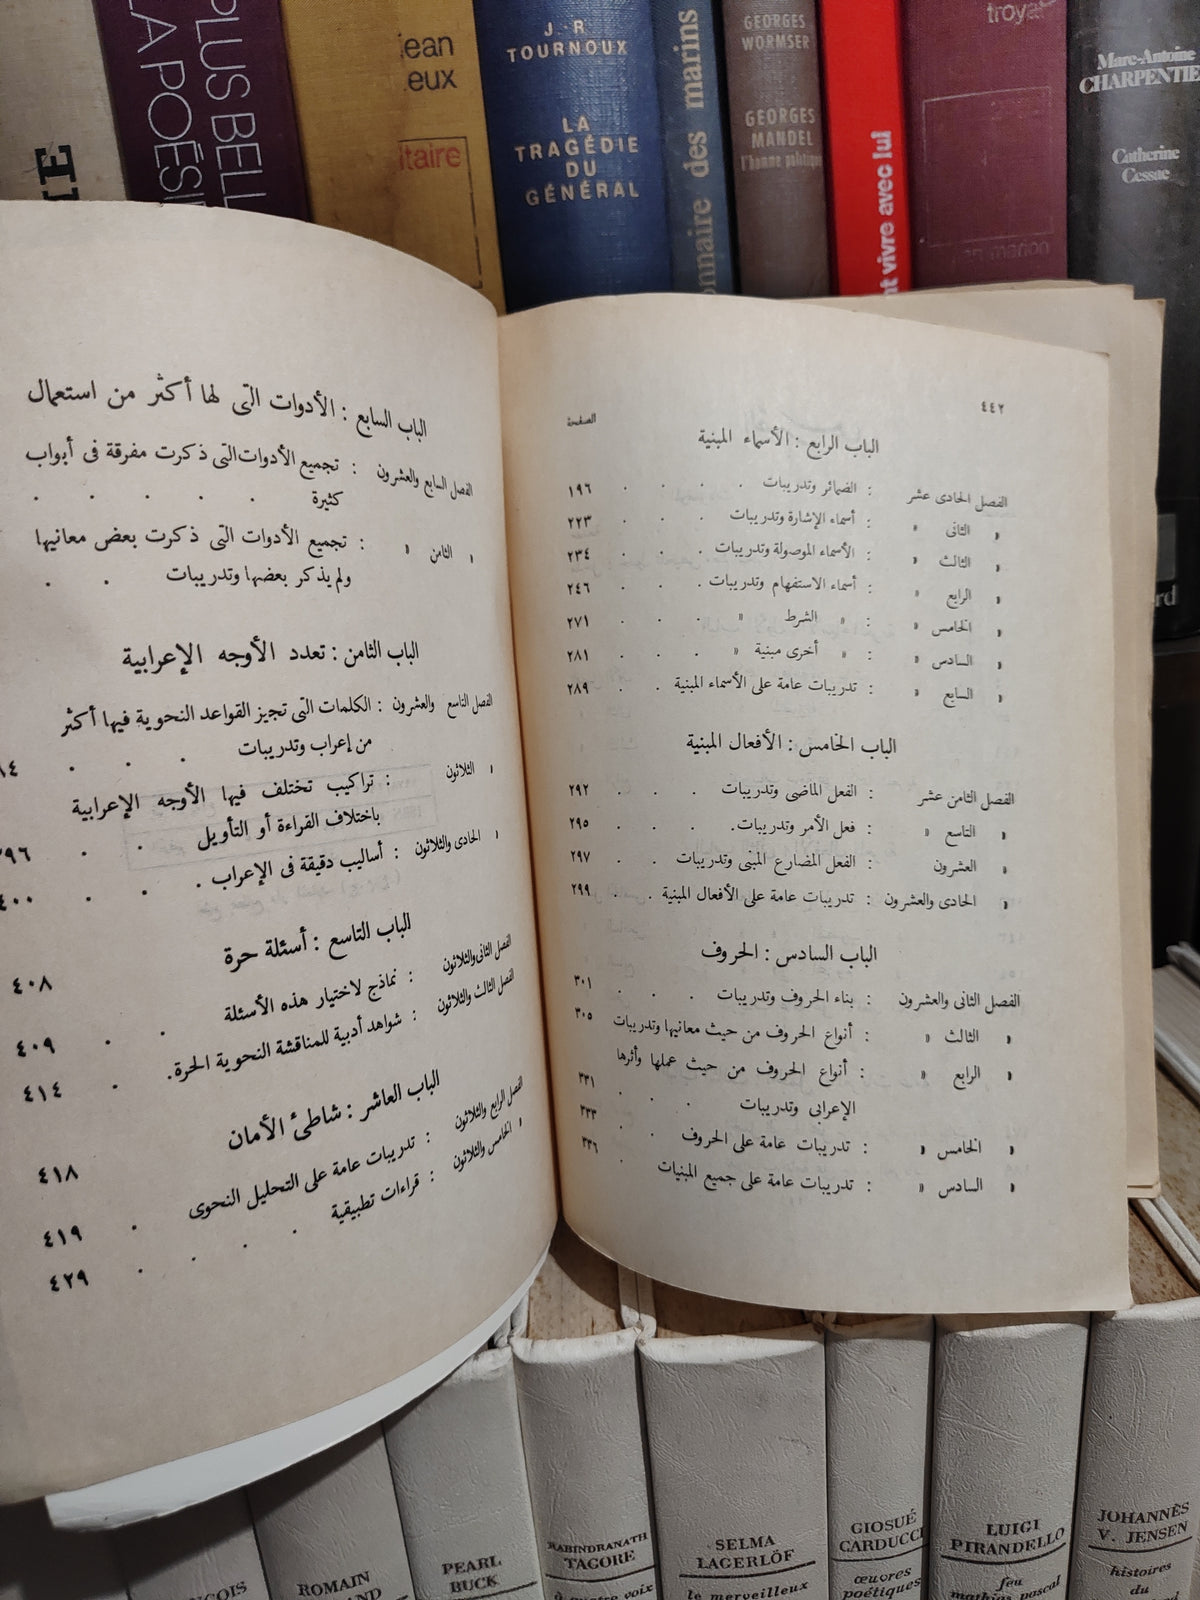 PLUS BELL
LA POÉSI
jean
eux
itaire
J.-R
TOURNOUX
LA
TRAGÉDIE
DU
GÉNÉRAL
onnaire des marins
GEORGES
WORMSER
GEORGES
MANDEL
l'homme politique
nt vivre avec lui
troyat
Marc-Antoine
CHARPENTIE
Catherine
Cessac
٤٤٢
الصفحة
الباب الرابع : الأسماء المبنية
الفصل الحادى عشر : الضمائر وتدريبات . . . ١٩٦
» الثانى » : أسماء الإشارة وتدريبات . . . ٢٢٣
» الثالث » : الأسماء الموصولة وتدريبات . . . ٢٣٤
» الرابع » : أسماء الاستفهام وتدريبات . . . ٢٤٦
» الخامس » : » الشرط » . . . ٢٧١
» السادس » : » أخرى مبنية » . . . ٢٨١
» السابع » : تدريبات عامة على الأسماء المبنية . . ٢٨٩
الباب الخامس : الأفعال المبنية
الفصل الثامن عشر : الفعل الماضى وتدريبات . . . ٢٩٢
» التاسع » : فعل الأمر وتدريبات . . . . ٢٩٥
» العشرون : الفعل المضارع المبنى وتدريبات . . ٢٩٧
» الحادى والعشرون : تدريبات عامة على الأفعال المبنية . . ٢٩٩
الباب السادس : الحروف
الفصل الثانى والعشرون : بناء الحروف وتدريبات . . . ٣٠١
» الثالث » : أنواع الحروف من حيث معانيها وتدريبات ٣٠٥
» الرابع » : أنواع الحروف من حيث عملها وأثرها
الإعرابى وتدريبات . . . ٣٣١
» الخامس » : تدريبات عامة على الحروف . . ٣٣٣
» السادس » : تدريبات عامة على جميع المبنيات . ٣٣٦
الباب السابع : الأدوات التى لها أكثر من استعمال
الفصل السابع والعشرون : تجميع الأدوات التى ذكرت مفرقة فى أبواب
كثيرة . . . . . .
» الثامن » : تجميع الأدوات التى ذكرت بعض معانيها
ولم يذكر بعضها وتدريبات . .
الباب الثامن : تعدد الأوجه الإعرابية
الفصل التاسع والعشرون : الكلمات التى تجيز القواعد النحوية فيها أكثر
من إعراب وتدريبات . . .
» الثلاثون : تراكيب تختلف فيها الأوجه الإعرابية
باختلاف القراءة أو التأويل . . ٣٩٦
» الحادى والثلاثون : أساليب دقيقة فى الإعراب . . . ٤٠٠
الباب التاسع : أسئلة حرة
٤٠٨
الفصل الثانى والثلاثون : نماذج لاختيار هذه الأسئلة . . ٤٠٩
الفصل الثالث والثلاثون : شواهد أدبية للمناقشة النحوية الحرة . . ٤١٤
الباب العاشر : شاطئ الأمان
٤١٨
الفصل الرابع والثلاثون : تدريبات عامة على التحليل النحوى . ٤١٩
» الخامس والثلاثون : قراءات تطبيقية . . . . ٤٢٩
ROMAIN
PEARL
BUCK
RABINDRANATH
TAGORE
SELMA
LAGERLÖF
le merveilleux
GIOSUÉ
CARDUCCI
œuvres
poétiques
LUIGI
PIRANDELLO
feu
mathias pascal
JOHANNÈS
V. JENSEN
histoires
du